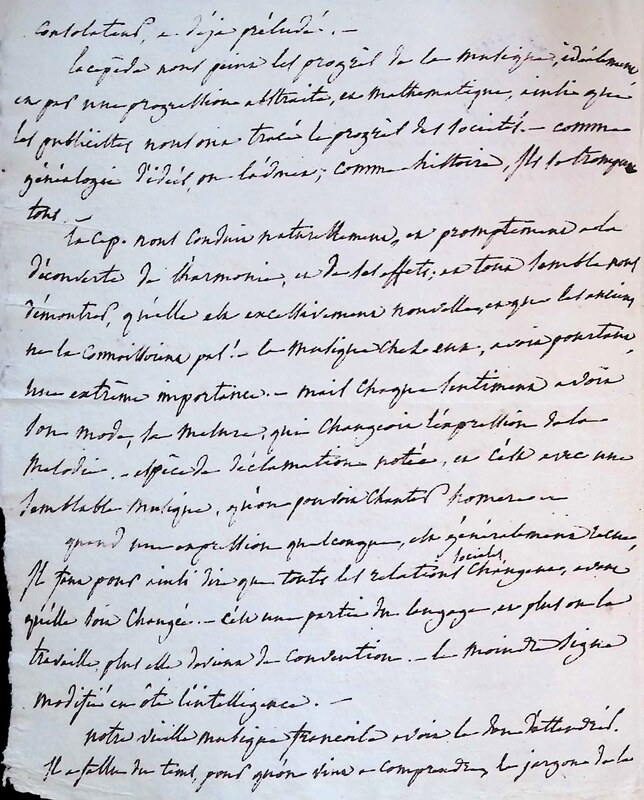 consolateurs, a déja préludé. —
lacépède nous peint les progrès de la musique, idéalement
en par une progression abstraite, en mathématique, ainsi que
les publicistes nous ont tracé le progrès des sociétés. — comme
généalogie d'idées, on l'admet; comme histoire, ils se trompent
tous.
Lacep. nous conduit naturellement, et promptement a la
découverte de l'harmonie, et de ses effets; et tout semble nous
démontrer, qu'elle est excessivement nouvelle, et que les anciens
ne la connoissoient pas! — la musique chez eux, avoit pourtant,
une extrême importance. — mais chaque sentiment avoit
son mode, sa mesure, qui changeoit l'expression de la
mélodie. — espèce de déclamation notée, et c'est avec une
semblable musique, qu'on pouvoit chanter homere —
quand une expression quelconque, est généralement recue,
Il faut pour ainsi dire que toutes les relations sociales changent, avant
qu'elle soit changée. — C'est une partie du langage, et plus on la
travaille, plus elle devient de convention. — le moindre signe
modifié en ôte l'intelligence. —
notre vieille musique francoise avoit le don d'attendrir.
Il a fallu du tems, pour qu'on vint a comprendre, le jargon de la